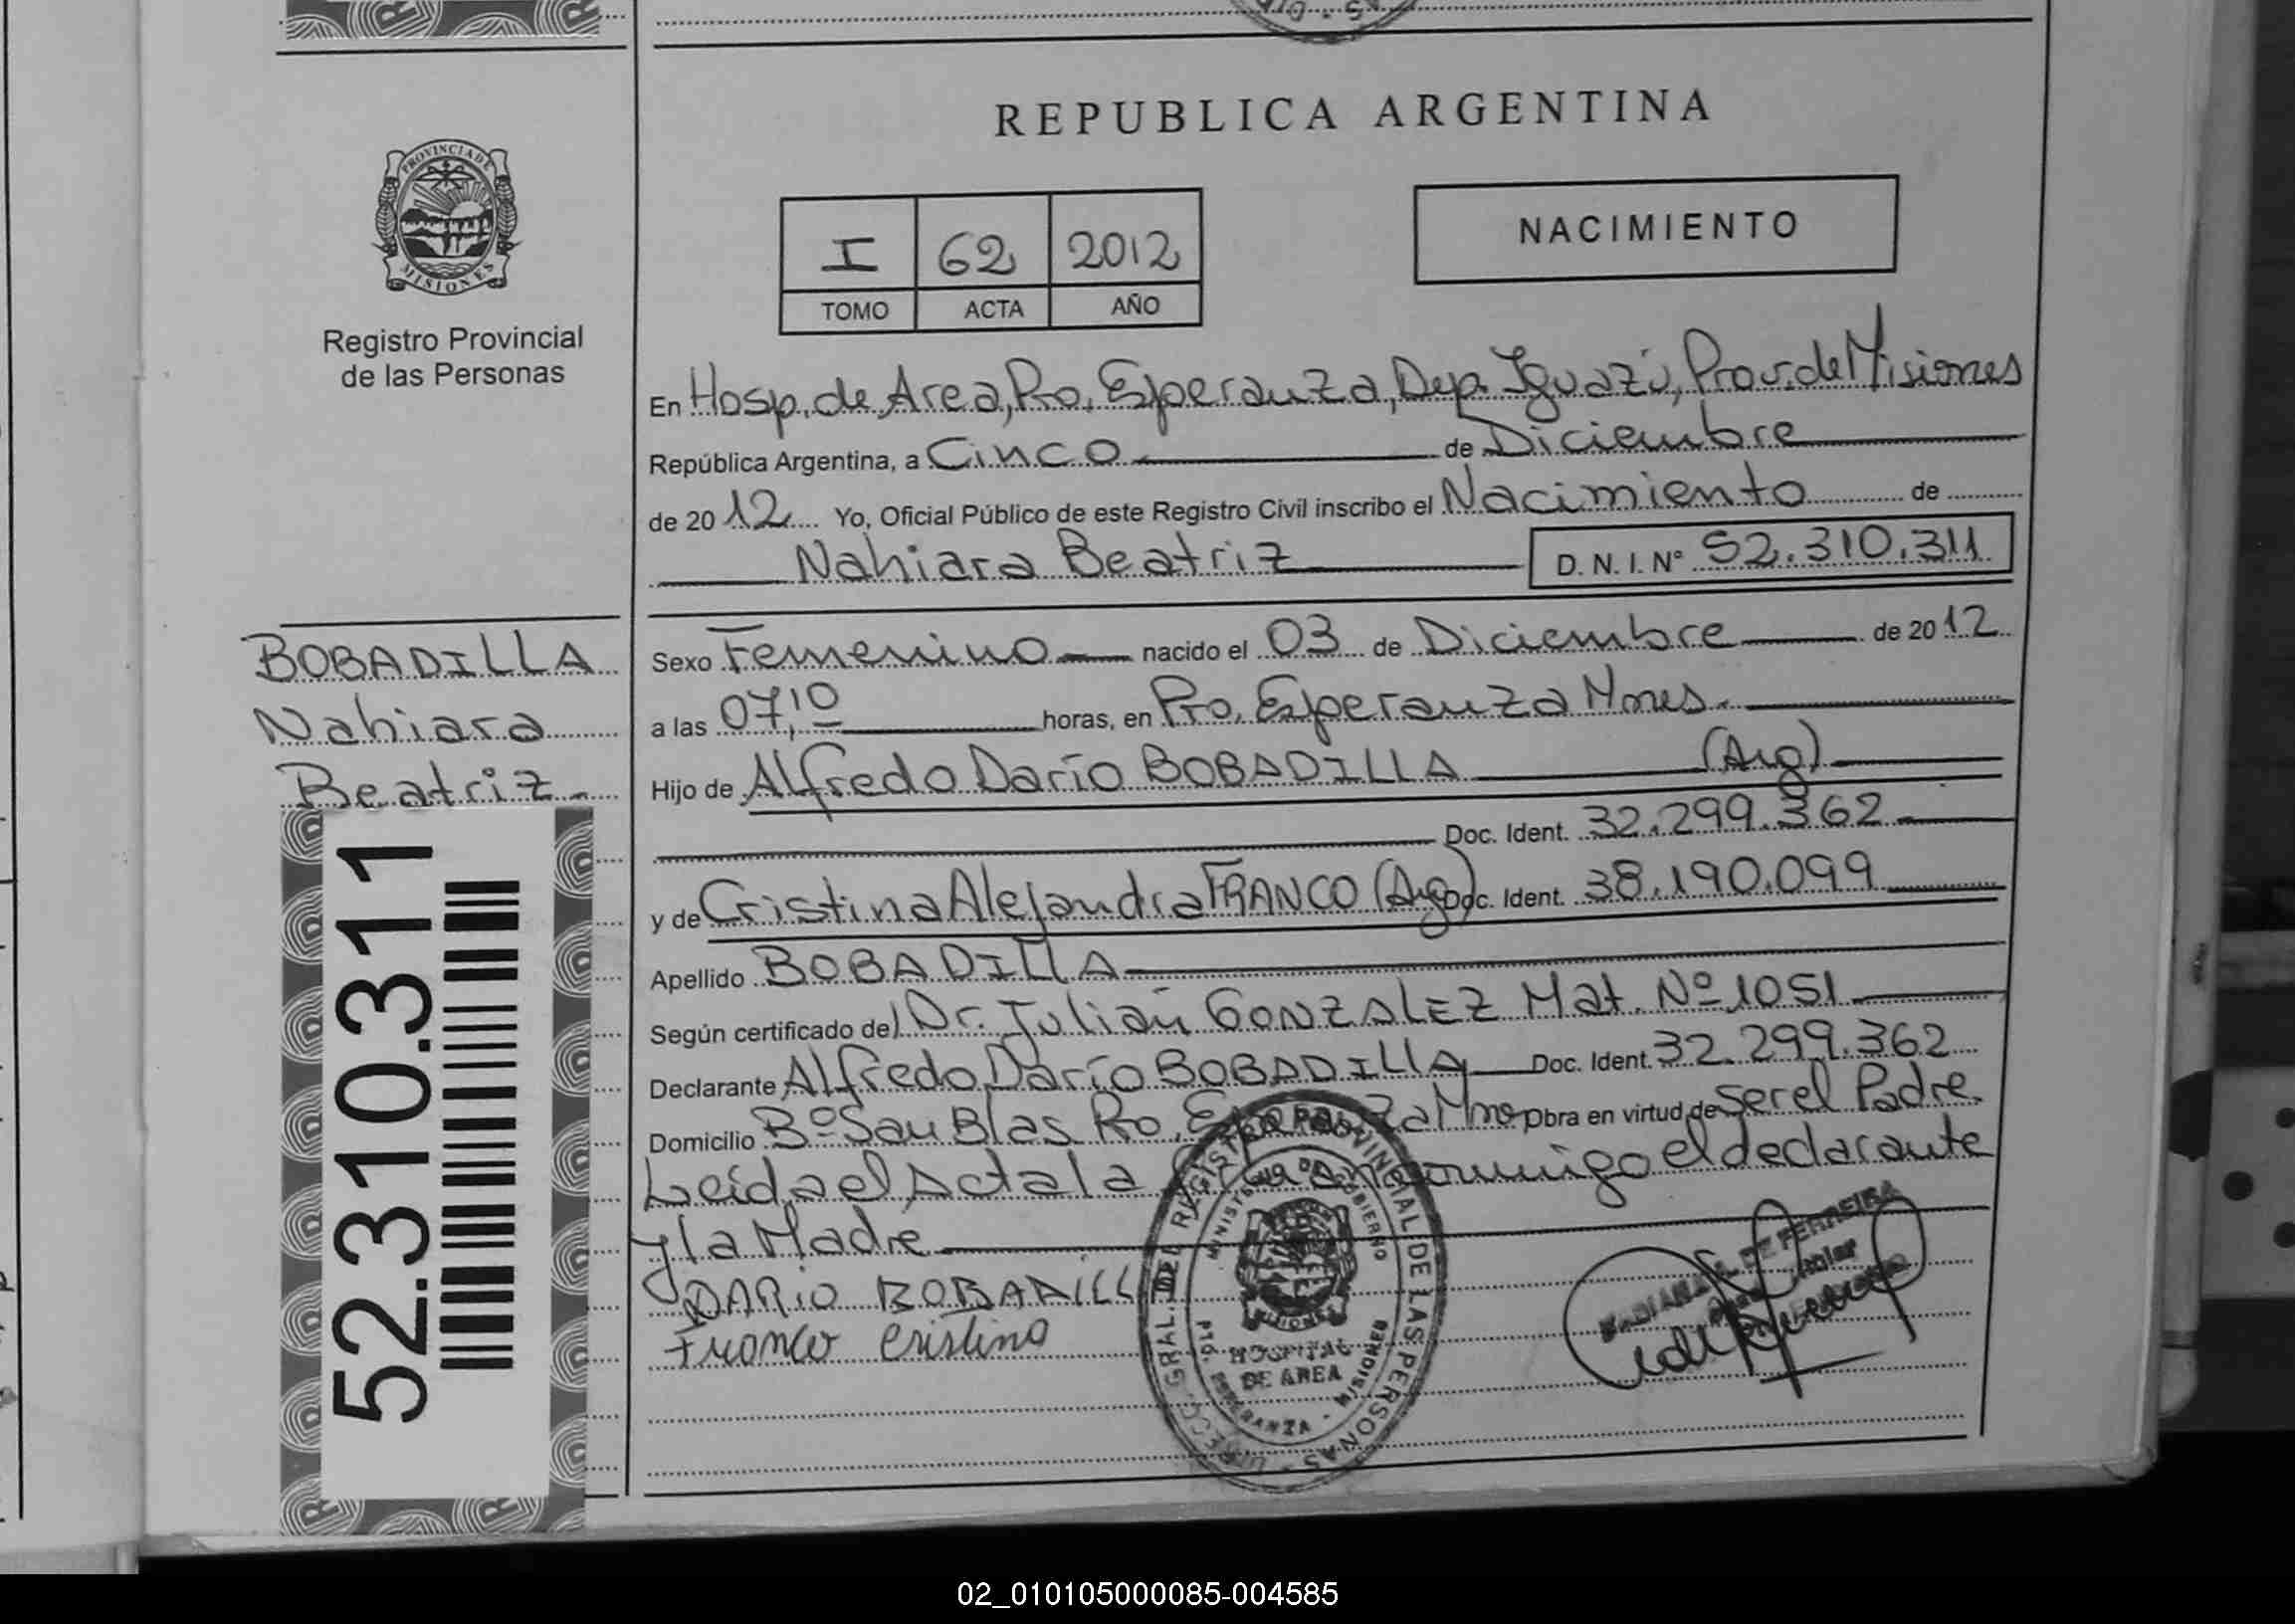 REPUBLICA ARGENTINA
PROVINCIA DE
MISIONES
Registro Provincial
de las Personas
I 62 2012
TOMO ACTA AÑO
NACIMIENTO
En Hosp. de Area, Pto. Esperanza, Dep. Iguazú, Prov. de Misiones
República Argentina, a Cinco de Diciembre
de 2012 Yo, Oficial Público de este Registro Civil inscribo el Nacimiento de
Nahiara Beatriz D. N. I. N° 52.310.311
BOBADILLA
Nahiara
Beatriz
52.310.311
Sexo Femenino nacido el 03 de Diciembre de 2012
a las 07,10 horas, en Pto. Esperanza Mnes.
Hijo de Alfredo Darío BOBADILLA (Arg)
Doc. Ident. 32.299.362
y de Cristina Alejandra FRANCO (Arg) Doc. Ident. 38.190.099
Apellido BOBADILLA
Según certificado del Dr. Julián GONZALEZ Mat. Nº 1051
Declarante Alfredo Darío BOBADILLA Doc. Ident. 32.299.362
Domicilio Bº San Blas Pto. Esperanza Mnes Obra en virtud de ser el Padre.
Leída el Acta la firman conmigo el declarante
y la Madre
DARIO BOBADILLA
Franco Cristina
GRAL. DEL REGISTRO PROVINCIAL DE LAS PERSONAS
MINISTERIO DE GOBIERNO
MISIONES
HOSPITAL
DE AREA
PTO. ESPERANZA - MISIONES
DE FERREIRA
02_010105000085-004585